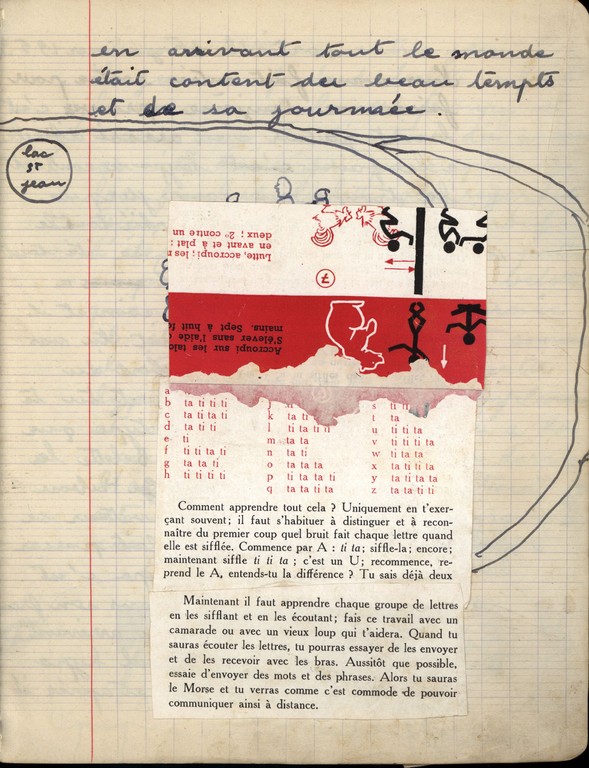 en arrivant tout le monde
était content deu beau tempts
et de sa jourmaée.
lac
st
jean
Lutte, accroupi; les
en avant et à plat:
deux; 2º contre un
7
Accroupi sur les talo
S'élever sans l'aide
mains. Sept à huit fo
a
b ta ti ti ti
c ta ti ta ti
d ta ti ti
e ti
f ti ti ta ti
g ta ta ti
h ti ti ti ti
j
k ta ti
l ti ta ti ti
m ta ta
n ta ti
o ta ta ta
p ti ta ta ti
q ta ta ti ta
s ti ti
t ta
u ti ti ta
v ti ti ti ta
w ti ta ta
x ta ti ti ta
y ta ti ta ta
z ta ta ti ti
Comment apprendre tout cela ? Uniquement en t'exer-
çant souvent; il faut s'habituer à distinguer et à recon-
naître du premier coup quel bruit fait chaque lettre quand
elle est sifflée. Commence par A : ti ta; siffle-la; encore;
maintenant siffle ti ti ta ; c'est un U; recommence, re-
prend le A, entends-tu la différence ? Tu sais déjà deux
Maintenant il faut apprendre chaque groupe de lettres
en les sifflant et en les écoutant; fais ce travail avec un
camarade ou avec un vieux loup qui t'aidera. Quand tu
sauras écouter les lettres, tu pourras essayer de les envoyer
et de les recevoir avec les bras. Aussitôt que possible,
essaie d'envoyer des mots et des phrases. Alors tu sauras
le Morse et tu verras comme c'est commode de pouvoir
communiquer ainsi à distance.